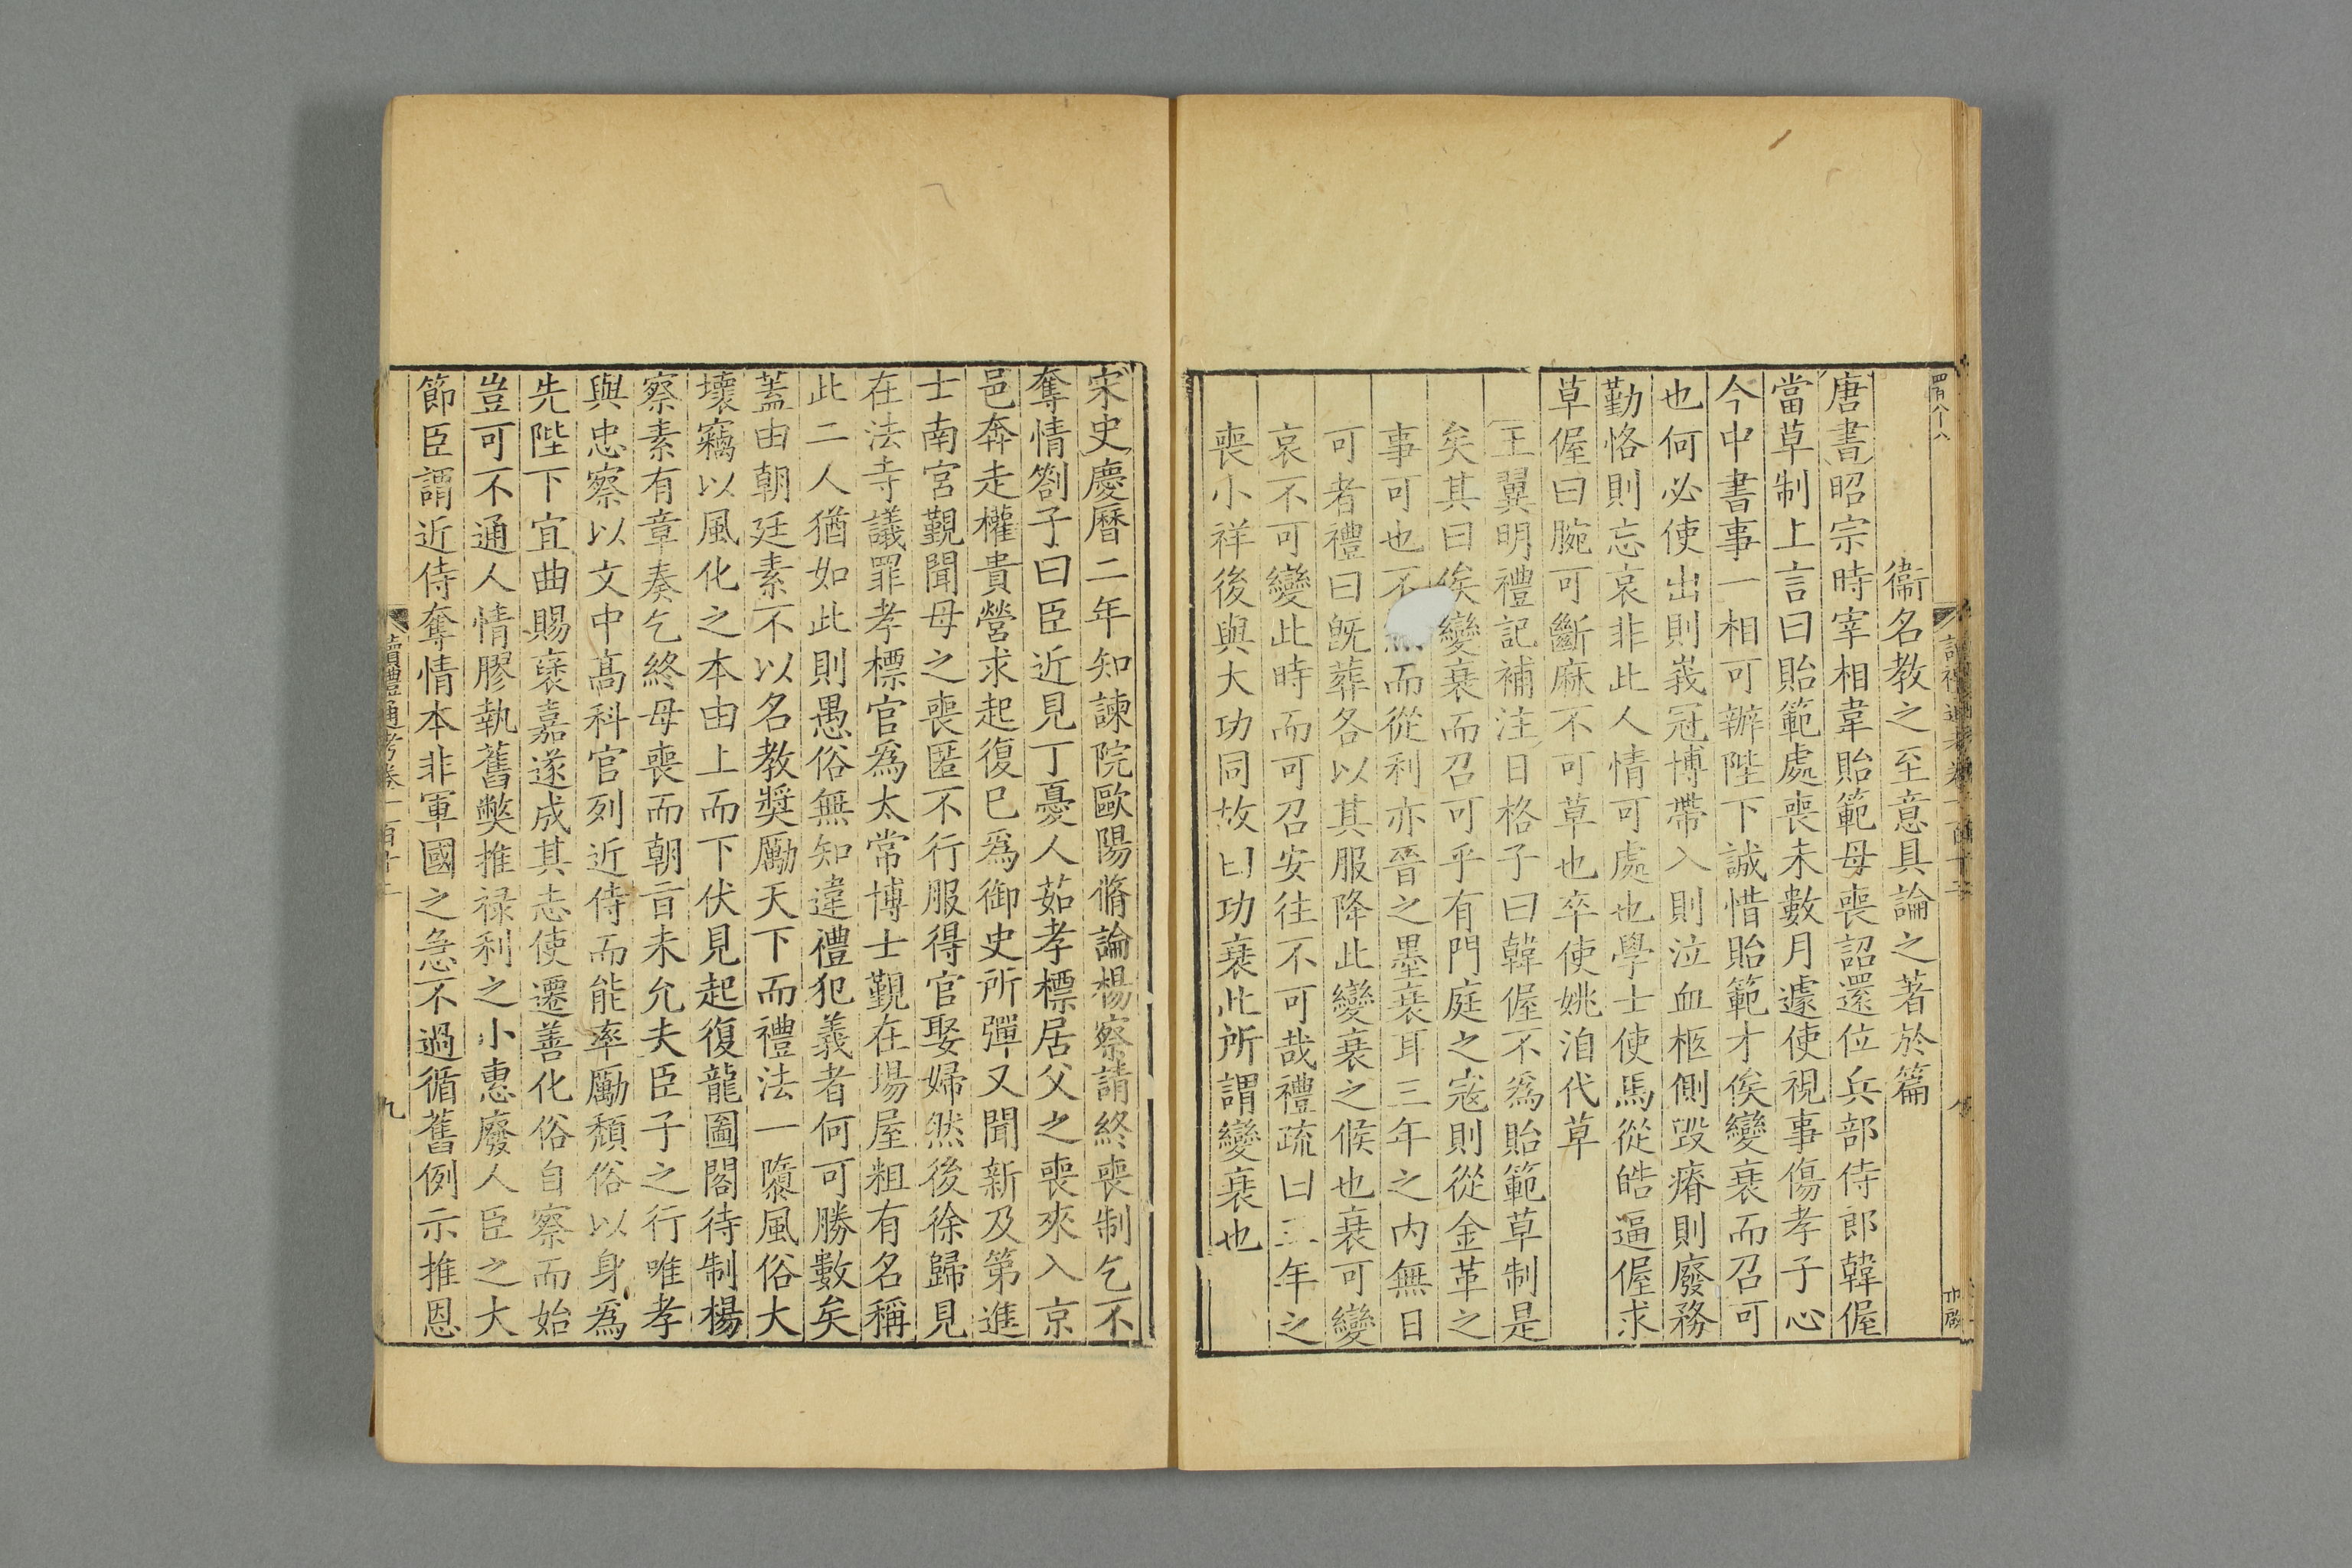 四百八十八
讀禮通考卷一百十二
衞名教之至意具論之著於篇
唐書昭宗時宰相韋貽範母喪詔還位兵部侍郎韓偓
當草制上言曰貽範處喪未數月遽使視事傷孝子心
今中書事一相可辦陛下誠惜貽範才俟變衰而召可
也何必使出則峩冠博帶入則泣血柩側毀瘠則廢務
勤恪則忘哀非此人情可處也學士使馬從皓逼偓求
草偓曰腕可斷麻不可草也卒使姚洎代草
王翼明禮記補注曰格子曰韓偓不爲貽範草制是
矣其曰俟變衰而召可乎有門庭之寇則從金革之
事可也不而從利亦晉之墨衰耳三年之内無日
可者禮曰旣葬各以其服降此變衰之候也衰可變
哀不可變此時而可召安往不可哉禮疏曰三年之
喪小祥後與大功同故曰功衰此所謂變衰也
宋史慶曆二年知諫院歐陽脩論楊察請終喪制乞不
奪情劄子曰臣近見丁憂人茹孝標居父之喪來入京
邑奔走權貴營求起復已爲御史所彈又聞新及第進
士南宮覲聞母之喪匿不行服得官娶婦然後徐歸見
在法寺議罪孝標官爲太常博士覲在場屋粗有名稱
此二人猶如此則愚俗無知違禮犯義者何可勝數矣
蓋由朝廷素不以名教奬勵天下而禮法一隳風俗大
壞竊以風化之本由上而下伏見起復龍圖閣待制楊
察素有章奏乞終母喪而朝旨未允夫臣子之行唯孝
與忠察以文中高科官列近侍而能率勵頹俗以身爲
先陛下宜曲賜襃嘉遂成其志使遷善化俗自察而始
豈可不通人情膠執舊獘推禄利之小惠廢人臣之大
節臣謂近侍奪情本非軍國之急不過循舊例示推恩
讀禮通考卷一百十二
九